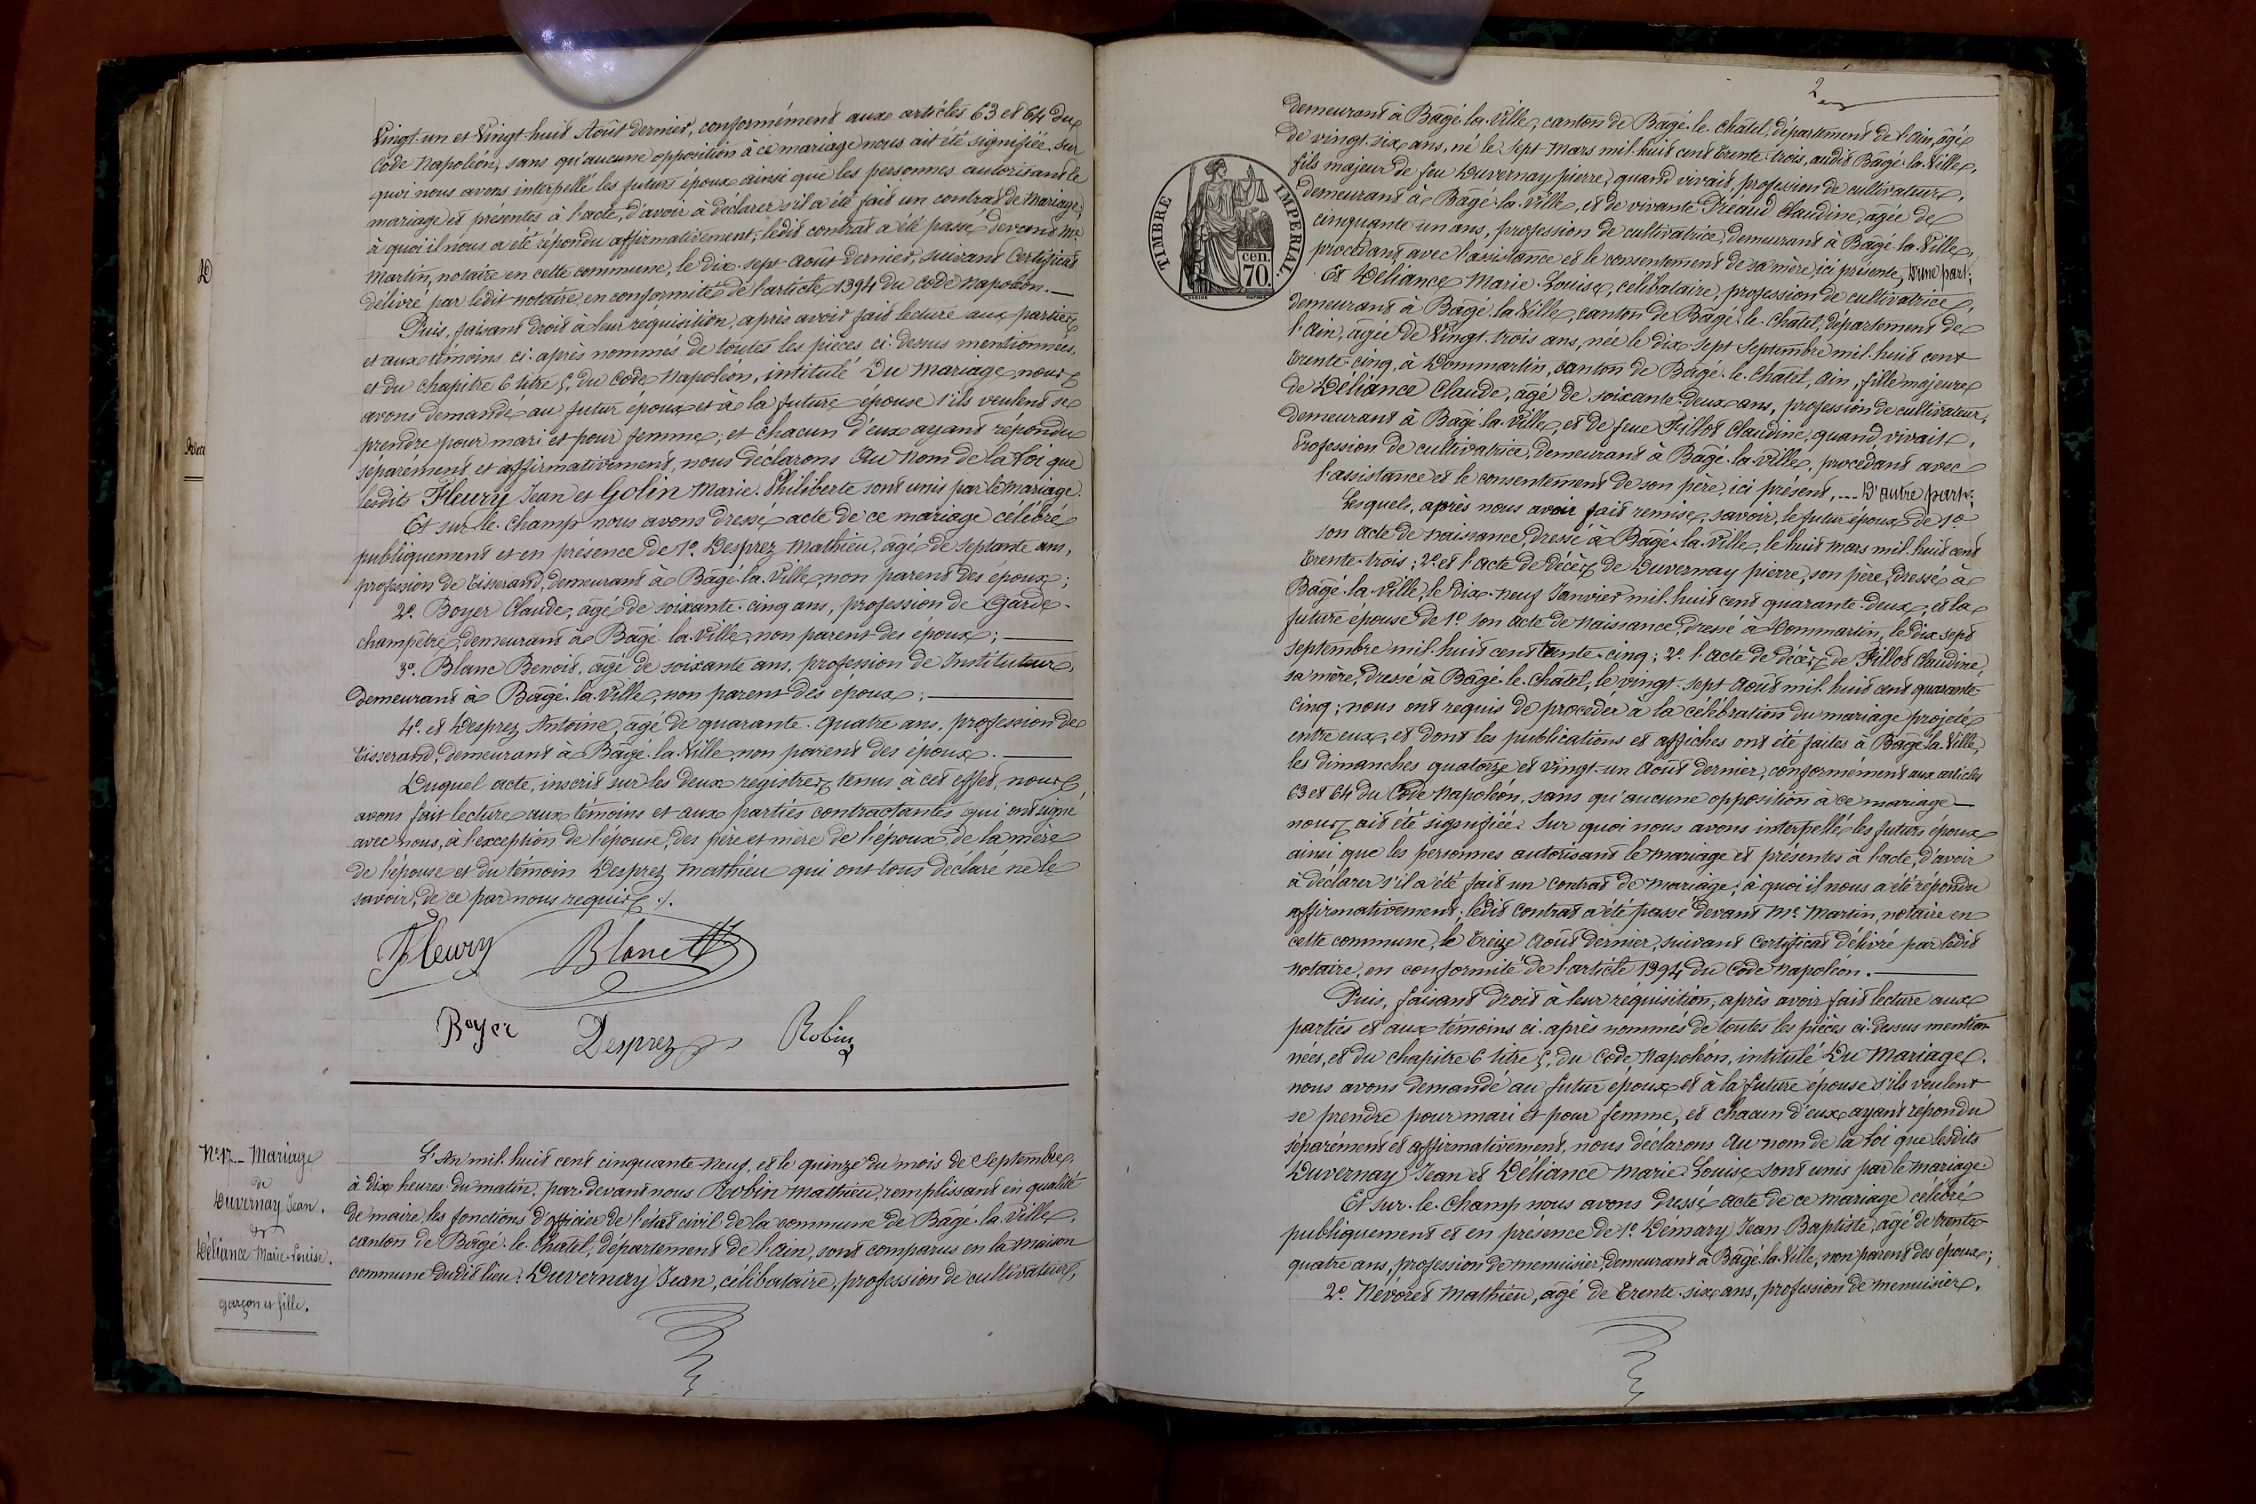 Vingt-un et Vingt-huit Août dernier, conformément aux articles 63 et 64 du
Code Napoléon, sans qu'aucune opposition à ce mariage nous ait été signifiée. Sur
quoi nous avons interpellé les futurs époux ainsi que les personnes autorisant le
mariage et présentes à l'acte, d'avoir à déclarer s'il a été fait un contrat de Mariage;
à quoi il nous a été répondu affirmativement; ledit contrat a été passé devant Me
Martin, notaire en cette commune, le dix-sept août dernier, suivant Certificat
délivré par ledit notaire, en conformité de l'article 1394 du Code Napoléon.
Puis, faisant droit à leur réquisition, après avoir fait lecture aux parties
et aux témoins ci-après nommés de toutes les pièces ci-dessus mentionnées,
et du chapitre 6 titre 5, du Code Napoléon, intitulé Du Mariage, nous
avons demandé au futur époux et à la future épouse s'ils veulent se
prendre pour mari et pour femme; et chacun d'eux ayant répondu
séparément et affirmativement, nous déclarons Au Nom de la Loi que
lesdits Fleury Jean et Golin Marie Philiberte sont unis par le mariage.
Et sur-le-champ nous avons dressé acte de ce mariage célébré
publiquement et en présence de 1º. Desprez Mathieu, âgé de septante ans,
profession de Tisserand, demeurant à Bâgé-la-Ville, non parent des époux;
2º. Boyer Claude, âgé de soixante-cinq ans, profession de Garde-
champêtre, demeurant à Bâgé-la-Ville, non parent des époux;
3º. Blanc Benoit, âgé de soixante ans, profession de Instituteur,
demeurant à Bâgé-la-Ville, non parent des époux;
4º. et Desprez Antoine, âgé de quarante-quatre ans, profession de
Tisserand, demeurant à Bâgé-la-Ville, non parent des époux.
Duquel acte, inscrit sur les deux registres tenus à cet effet, nous
avons fait lecture aux témoins et aux parties contractantes qui ont signé
avec nous, à l'exception de l'épouse, des père et mère de l'époux, de la mère
de l'épouse et du témoin Desprez Mathieu qui ont tous déclaré ne le
savoir, de ce par nous requis ./.
Fleury Blanc
Boyer Desprez Robin
Nº 17 - Mariage
de
Duvernay Jean.
et
Déliance Marie-Louise.
garçon et fille.
L'An mil-huit cent cinquante-neuf, et le quinze du mois de Septembre,
à dix heures du matin, par-devant nous Robin Mathieu, remplissant en qualité
de maire, les fonctions d'officier de l'état civil de la commune de Bâgé-la-Ville,
canton de Bâgé-le-Chatel, département de l'Ain, sont comparus en la maison
commune dudit lieu: Duvernay Jean, célibataire, profession de cultivateur,
2
TIMBRE IMPERIAL.
cen.
70.
demeurant à Bâgé-la-Ville, canton de Bâgé-le-Chatel, département de l'Ain, âgé
de vingt-six ans, né le sept Mars mil-huit cent trente-trois, audit Bâgé-la-Ville,
fils majeur de feu Duvernay Pierre, quand vivait, profession de cultivateur,
demeurant à Bâgé-la-Ville, et de vivante Préaud Claudine, âgée de
cinquante-un ans, profession de cultivatrice, demeurant à Bâgé-la-Ville,
procédant avec l'assistance et le consentement de sa mère, ici présente, D'une part;
Et Déliance Marie-Louise, célibataire, profession de cultivatrice,
demeurant à Bâgé-la-Ville, canton de Bâgé-le-Châtel, département de
l'Ain, âgée de Vingt-trois ans, née le dix-sept Septembre mil-huit cent
trente-cinq, à Dommartin, canton de Bâgé-le-Châtel, Ain, fille majeure
de Déliance Claude, âgé de soixante-deux ans, profession de cultivateur,
demeurant à Bâgé-la-Ville, et de feue Fillot Claudine, quand vivait,
Profession de cultivatrice, demeurant à Bâgé-la-Ville, procédant avec
l'assistance et le consentement de son père, ici présent, --- D'autre part;
Lesquels, après nous avoir fait remise, savoir, le futur époux de 1º
son acte de naissance, dressé à Bâgé-la-Ville, le huit mars mil-huit cent
trente-trois; 2º. et l'acte de décès de Duvernay Pierre, son père, dressé à
Bâgé-la-Ville, le dix-neuf Janvier mil-huit cent quarante-deux, et la
future épouse de 1º. son acte de naissance, dressé à Dommartin, le dix sept
septembre mil-huit cent trente-cinq; 2º. l'acte de décès de Fillot Claudine
sa mère, dressé à Bâgé-le-Châtel, le vingt-sept août mil-huit cent quarante-
cinq; nous ont requis de procéder à la célébration du mariage projeté
entre eux, et dont les publications et affiches ont été faites à Bâgé-la-Ville,
les dimanches quatorze et vingt-un août dernier, conformément aux articles
63 et 64 du Code Napoléon, sans qu'aucune opposition à ce mariage
nous ait été signifiée. Sur quoi nous avons interpellé les futurs époux
ainsi que les personnes autorisant le mariage et présentes à l'acte, d'avoir
à déclarer s'il a été fait un contrat de mariage; à quoi il nous a été répondu
affirmativement; ledit contrat a été passé devant Me Martin, notaire en
cette commune, le treize août dernier, suivant certificat délivré par ledit
notaire, en conformité de l'article 1394 du Code Napoléon.
Puis, faisant droit à leur réquisition, après avoir fait lecture aux
parties et aux témoins ci-après nommés de toutes les pièces ci-dessus mention-
nées, et du chapitre 6 titre 5, du Code Napoléon, intitulé Du Mariage,
nous avons demandé au futur époux et à la future épouse s'ils veulent
se prendre pour mari et pour femme, et chacun d'eux ayant répondu
séparément et affirmativement, nous déclarons Au nom de la loi que lesdits
Duvernay Jean et Déliance Marie-Louise sont unis par le mariage.
Et sur-le-champ nous avons dressé acte de ce mariage célébré
publiquement et en présence de 1º. Démary Jean-Baptiste, âgé de trente-
quatre ans, profession de menuisier, demeurant à Bâgé-la-Ville, non parent des époux;
2º. Nevoret Mathieu, âgé de trente-six ans, profession de menuisier,